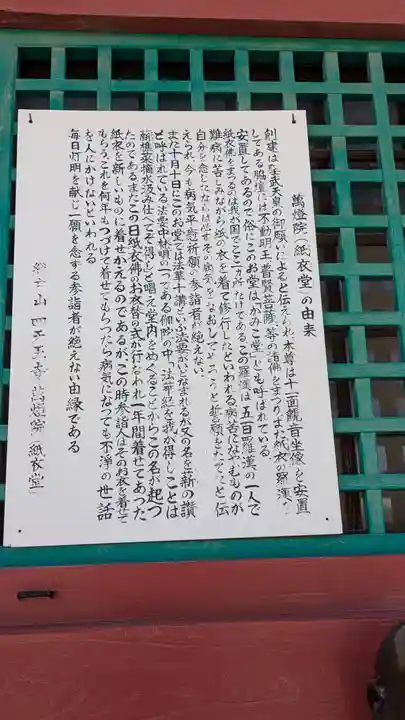 萬燈院（紙衣堂）の由来
創建は聖武天皇の御願によると伝えられ本尊は十一面観音坐像を安置
してある脇壇には不動明王、普賢菩薩等の諸佛をまつり、また紙衣の羅漢を
安置してあるので俗にこのお堂は「かみこ堂」とも呼ばれている。
紙衣佛をまつるのは我が国でここ一ヵ所だけである。この羅漢は五百羅漢の一人で
難病に苦しみながら紙の衣を着て修行したといわれる病苦になやむものが
自分を念じたならば必ずその病気をなおしてやろうと誓願をたてたと伝
えられ、今も病気平癒祈願の参詣者が絶えない。
また十月十日にこのお堂では法華十講という法要がいとなまれるが又の名を薪の讃
と呼ばれている法要中休唄の一つである伽陀の中、「法華経を我が得しことは
薪樵菜摘水汲み仕へてぞ得し」と唱え堂内をめぐることからこの名が起つ
たのである。またこの日紙衣佛のお衣替の式が行なわれ一年間着せてあった
紙衣を新しいものに着せかえるのであるが、この時参詣人はそのお衣を着せて
もらう。これを何年もつづけて着せてもらったら病気になっても不浄の世話
を人にかけないといわれる
毎日灯明を献じ一願を念ずる参詣者が絶えない由縁である
四天王寺 萬燈院（紙衣堂）